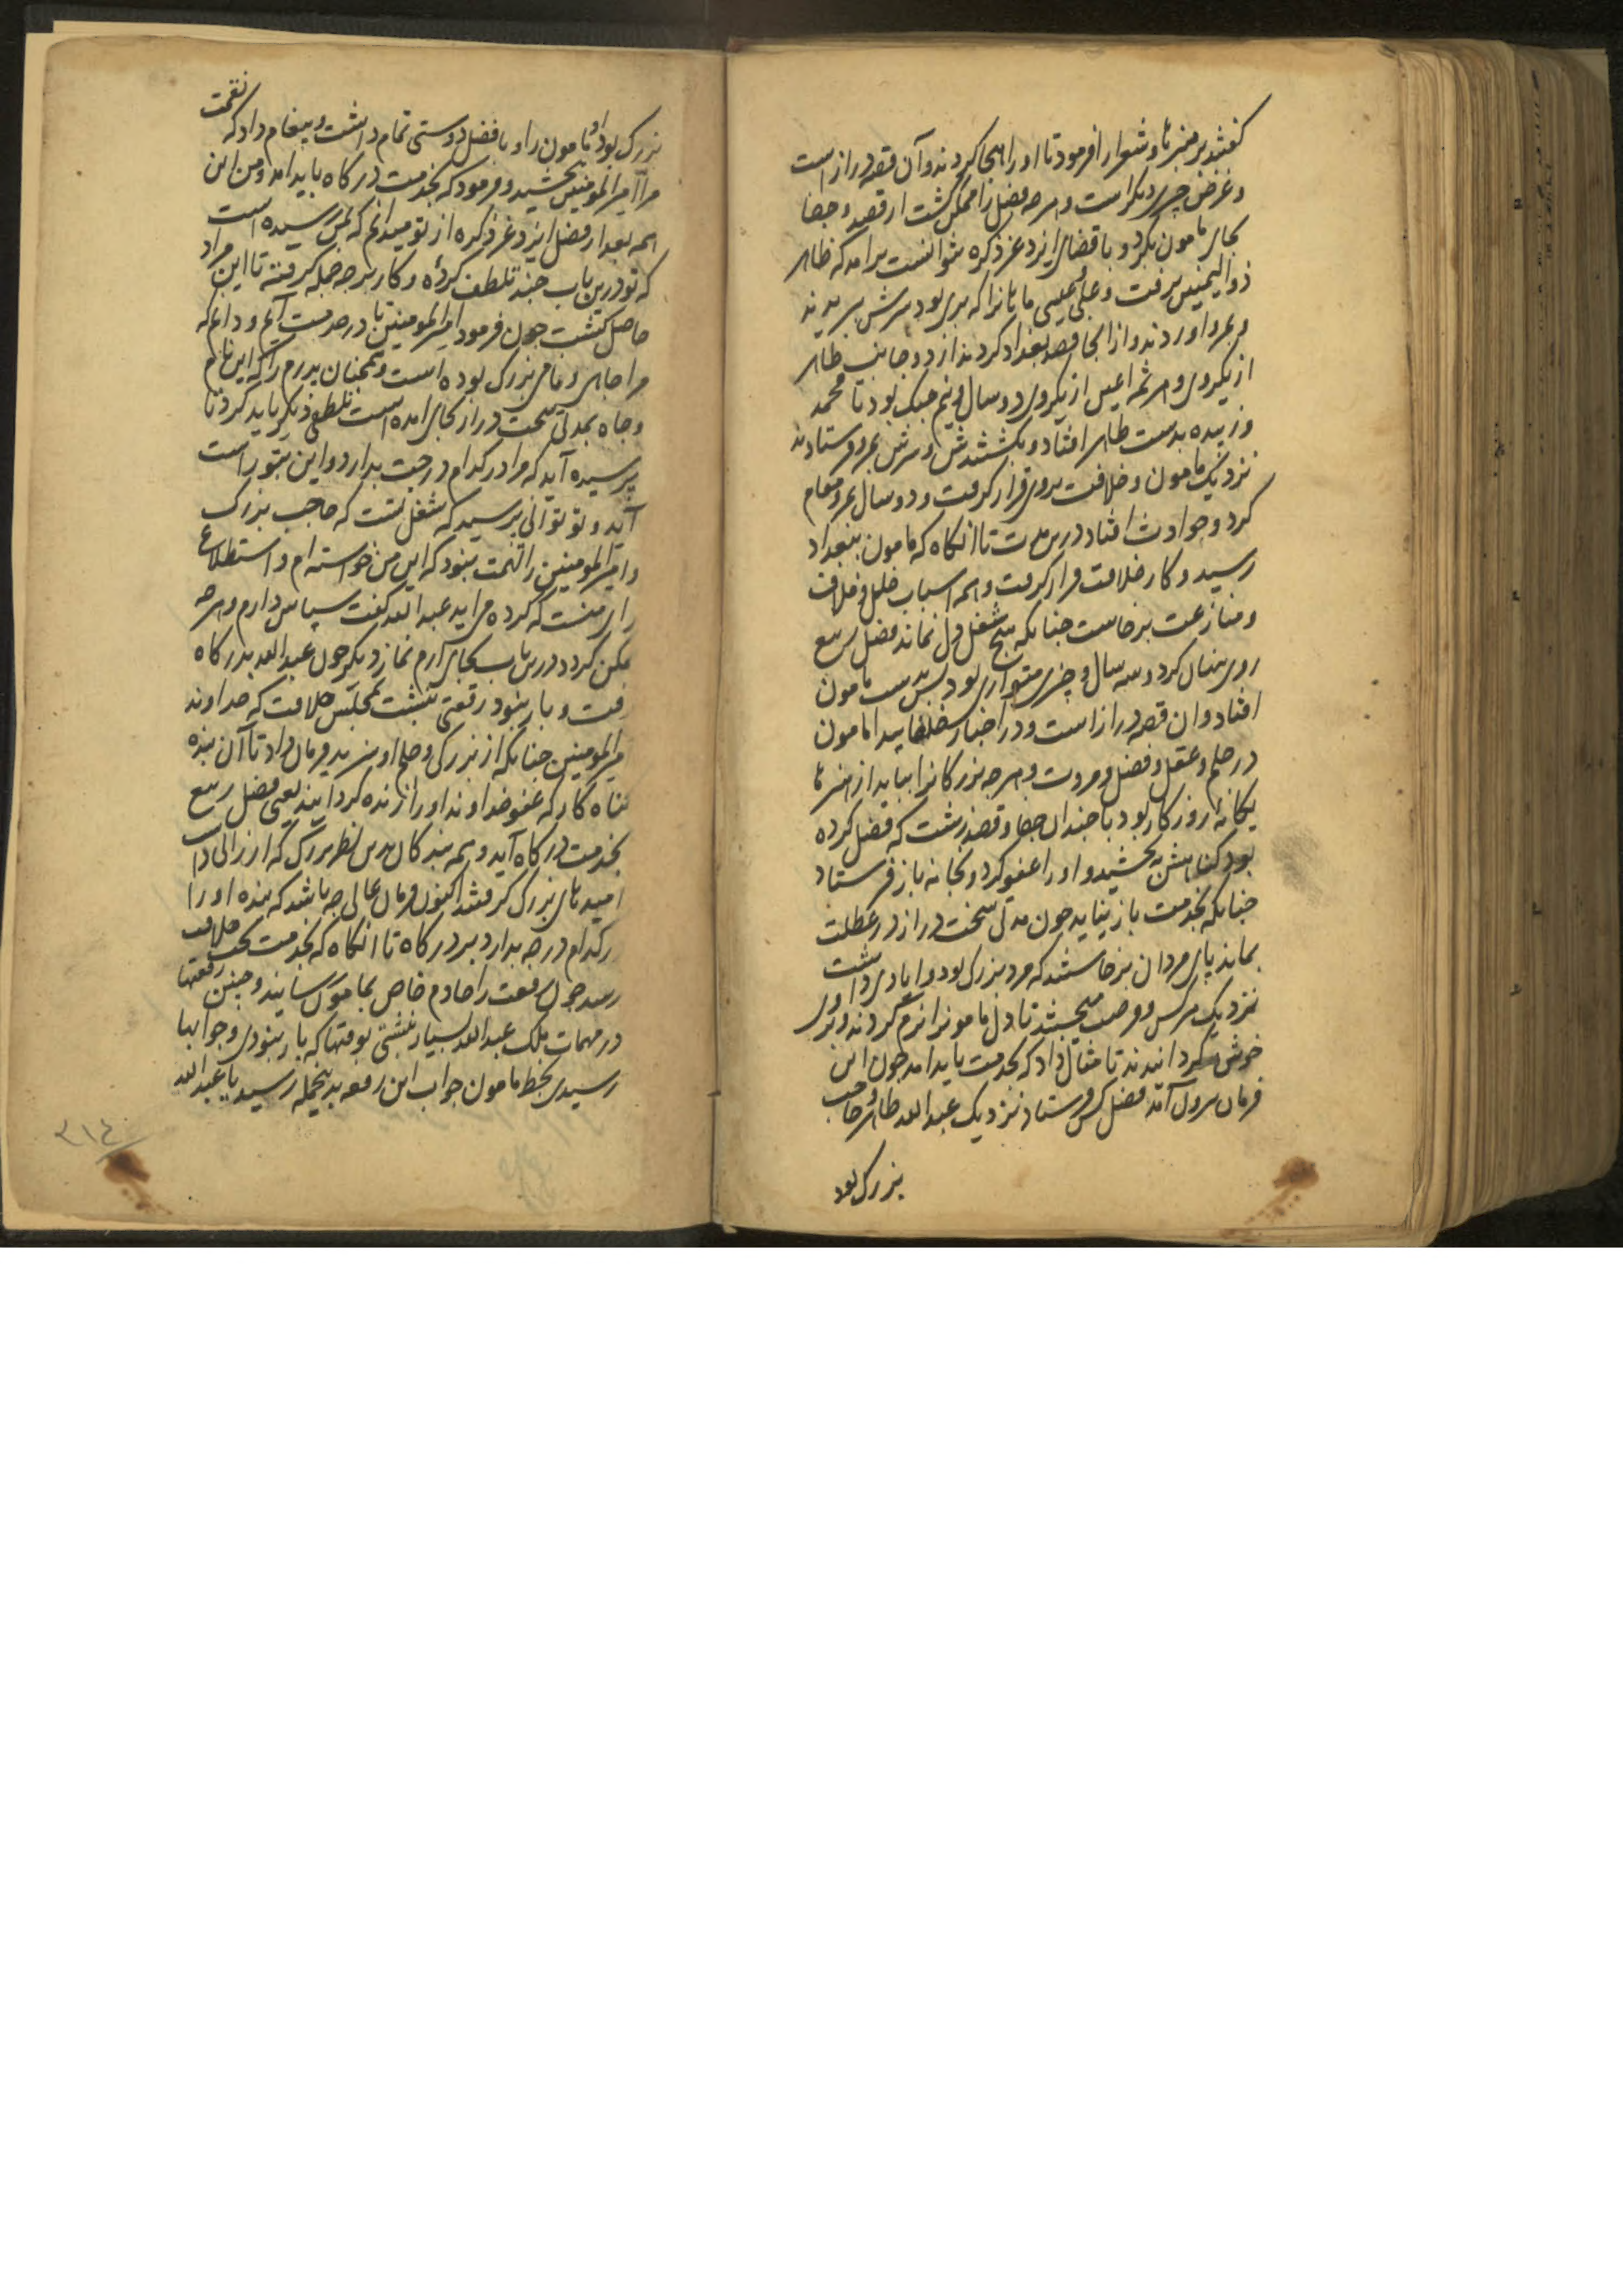 گفتند بر منبرها و شعرا را فرمود تا او را هجا کردند و آن قصه دراز است
و غرض چیزی دیگر است و هر چه فضل را ممکن گشت از قصد و جفا
بجای مامون بکرد و با قضای ایزد عز ذکره نتوانست برامد که طاهر
ذو الیمینین برفت و علی عیسی ماهان را که بری بود سرش ببریدند
و بمرو اوردند و از انجا قصد بغداد کردند از دو جانب طاهر
از یکروی و هرثمه اعین از یکروی دو سال و نیم جنک بود تا محمد
زبیده بدست طاهر افتاد و بکشتندش و سرش بمرو فرستادند
نزدیک مامون و خلافت بروی قرار گرفت و دو سال بمرو مقام
کرد و حوادث افتاد درین مدت تا انکاه که مامون ببغداد
رسید و کار خلافت قرار گرفت و همه اسباب خلل و خلاف
و منازعت برخاست چنانکه هیچ شغل دل نماند فضل ربیع
روی پنهان کرد و سه سال و چیزی متواری بود پس بدست مامون
افتاد و ان قصه دراز است و در اخبار خلفا بیاید اما مامون
در حلم و عقل و فضل و مروت و هر چه بزرگان را بباید از هنرها
یگانهٔ روزگار بود با چندان جفا و قصد زشت که فضل کرده
بود گناهش بخشید و او را عفو کرد و بخانه باز فرستاد
چنانکه بخدمت باز نیاید چون مدتی سخت دراز در عطلت
بماند پای مردان برخاستند که مرد بزرگ بود و ایادی داشت
نزدیک هرکس و فرصت میجستند تا دل مامون را نرم کردند و بروی
خوش گردانیدند تا مثال داد که بخدمت باید امد چون این
فرمان بیرون آمد فضل کس فرستاد نزدیک عبدالله طاهر و حاجب
بزرگ بود
بزرگ بود او مامون را و با فضل دوستی تمام داشت و پیغام داد که
مرا امیر المومنین بخشید و فرمود که بخدمت درگاه باید امد و من این
همه بعد از فضل ایزد عز ذکره از تو میدانم که بمن رسیده است
که تو درین باب چند تلطف کردهٔ و کار بر چه جمله گرفته تا این مراد
حاصل گشت چون فرمود امیر المومنین تا در خدمت آیم و دانی که
مرا جاهی و نامی بزرگ بوده است و همچنان پدرم را که این نام
و جاه بمدتی سخت دراز بجای امده است تلطفی دیگر باید کرد تا
پرسیده آید که مرا در کدام درجت بدارد و این بتو راست
آید و تو توانی پرسید که شغل تست که حاجب بزرگ
و امیر المومنین را تهمت نبود که این من خواسته ام و استطلاع
رای منست که کرده می اید عبدالله گفت سپاس دارم و هر چه
ممکن گردد درین باب بجای آرم نماز دیگر چون عبدالله بدرگاه
رفت و بار نبود رقعتی نبشت بمجلس خلافت که خداوند
امیر المومنین چنانکه از بزرگی و حلم او سزید فرمان داد تا آن بنده
گناه کار که عفو خداوند او را زنده گردانید یعنی فضل ربیع
بخدمت درگاه آید و همه بندگان بدین نظر بزرگ که ارزانی داشت
امیدهای بزرگ گرفتند اکنون فرمان عالی چه باشد که بنده او را
در کدام درجه بدارد بر درگاه تا انکاه که بخدمت تخت خلافت
رسد چون رقعت را خادم خاص بمامون رسانید و چنین رقعتها
در مهمات ملک عبدالله بسیار نبشتی بوقتها که بار نبودی و جوابها
رسیدی بخط مامون جواب این رقعه بدینجمله رسید یا عبدالله
۳۱۴